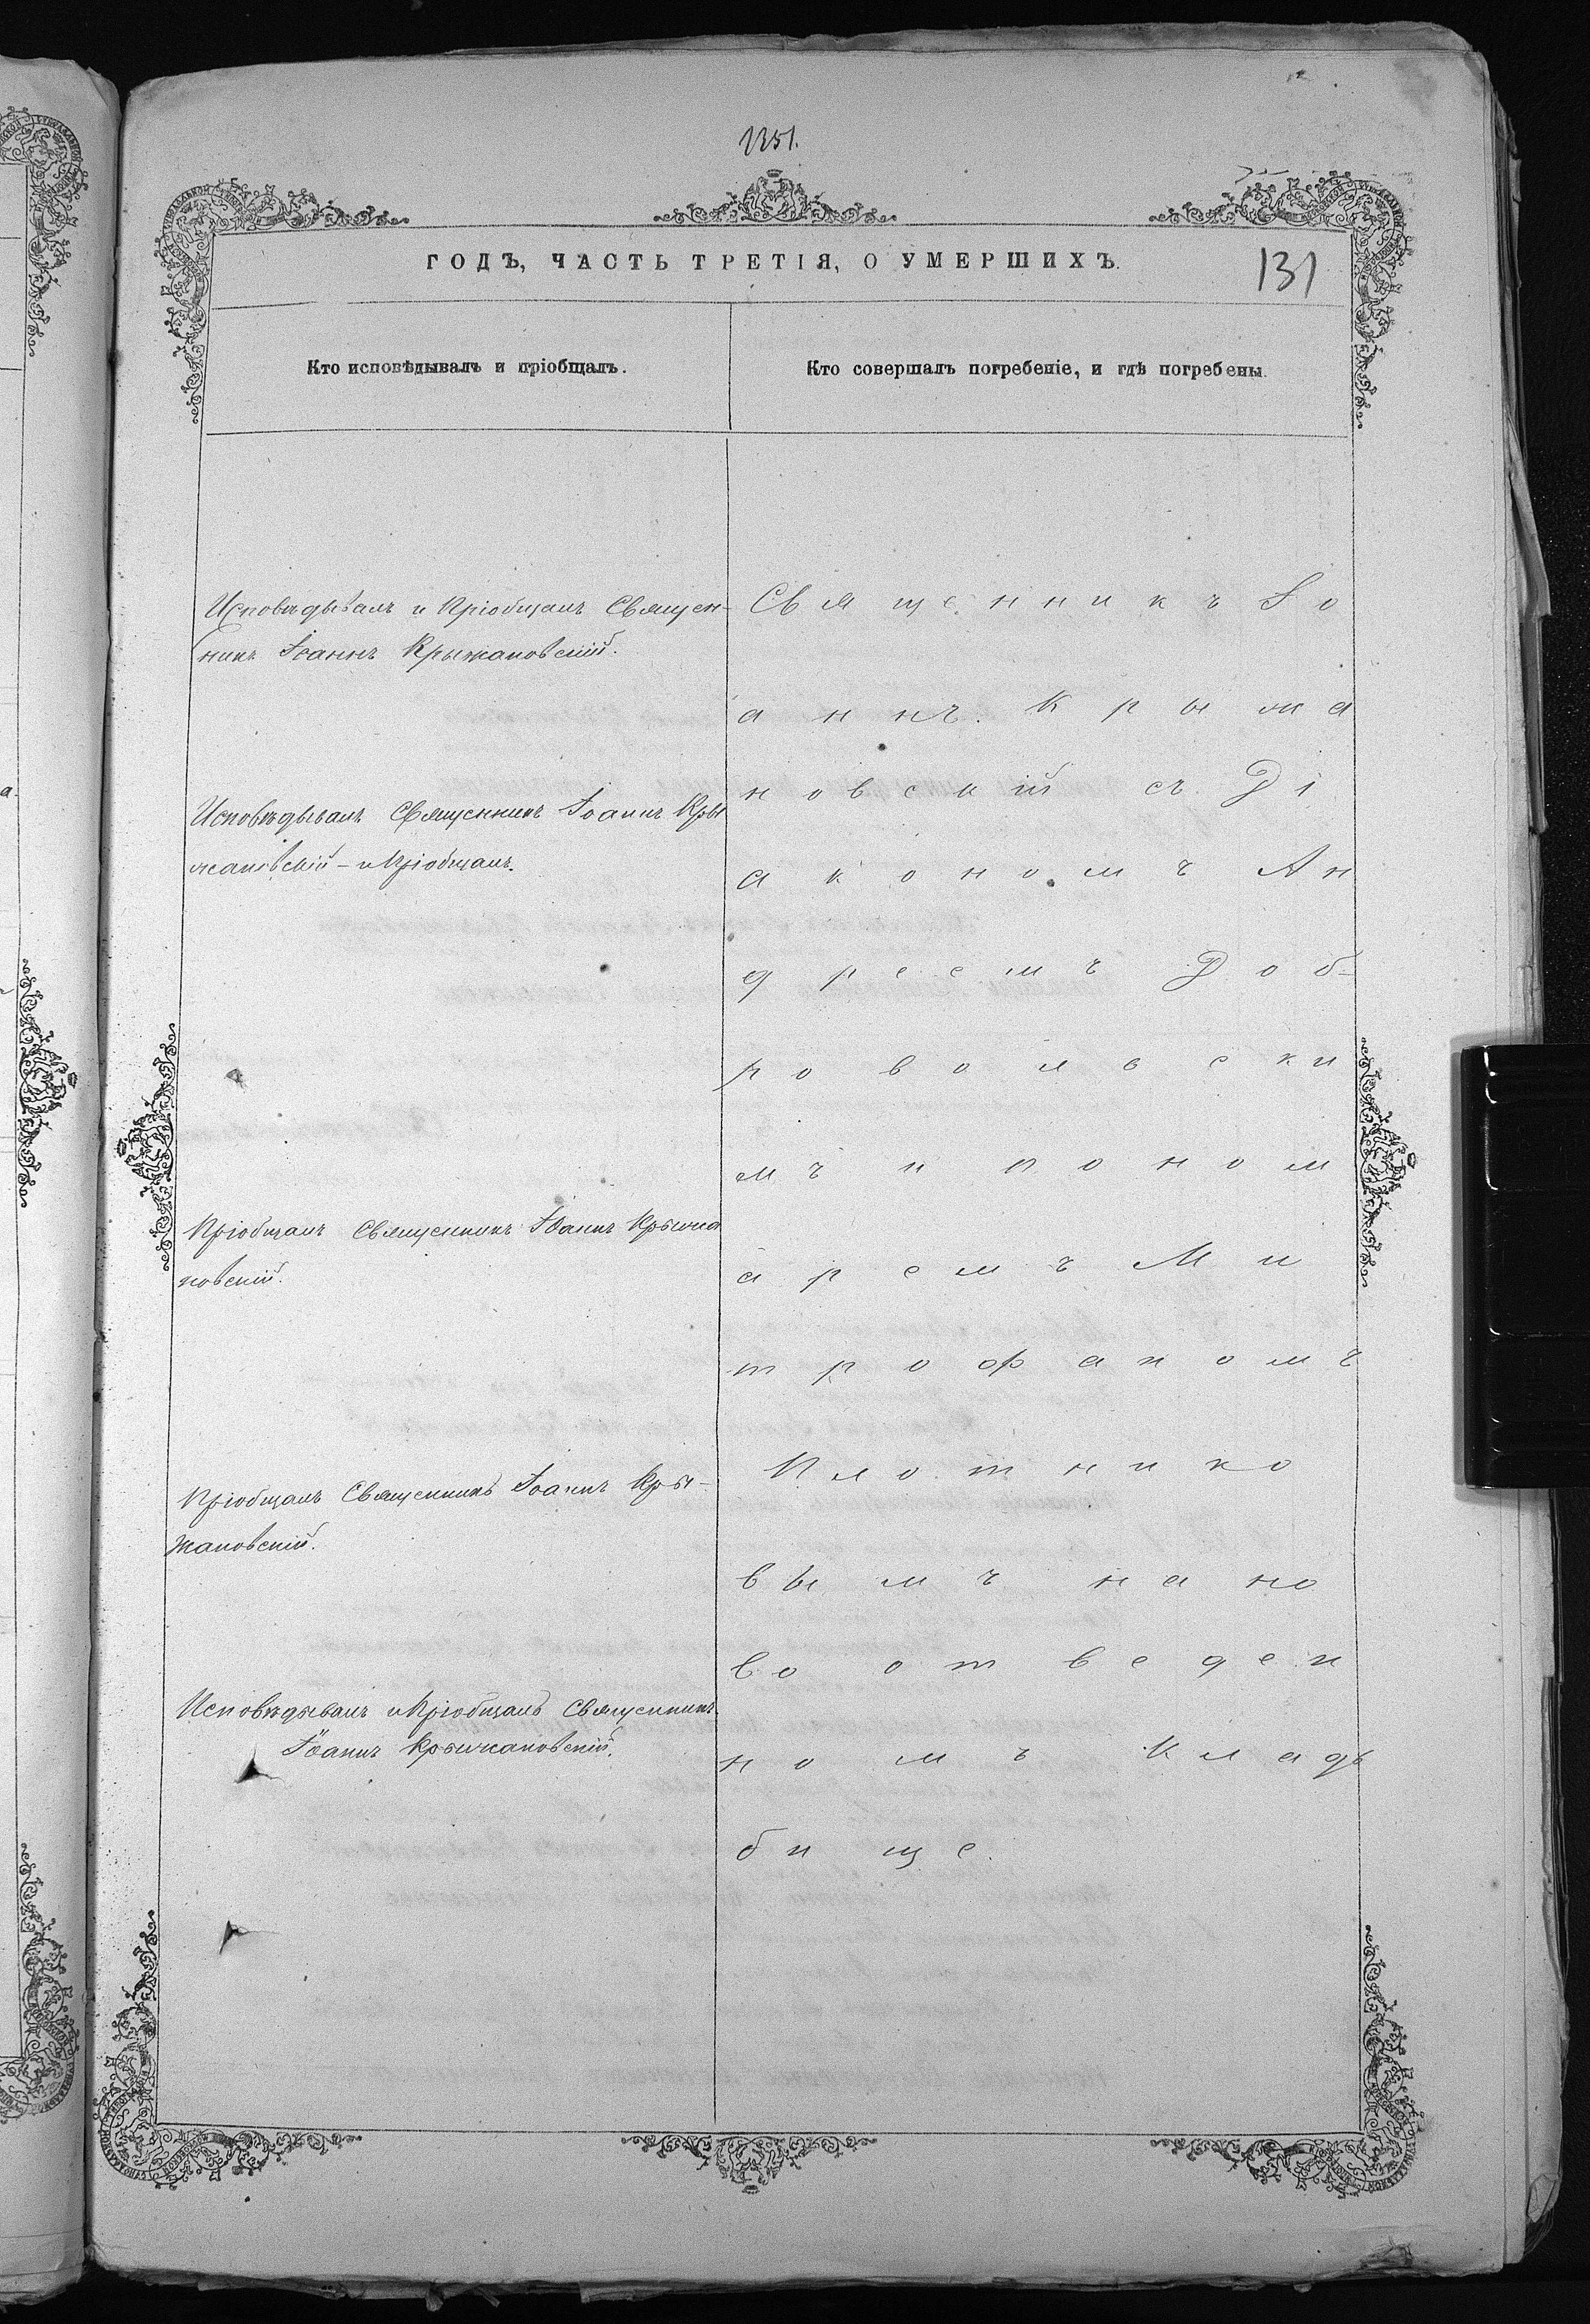 1251.
ГОДЪ, ЧАСТЬ ТРЕТІЯ, О УМЕРШИХЪ.
131
Кто исповѣдывалъ и пріобщалъ.
Кто совершалъ погребеніе, и гдѣ погребены.
Исповѣдывалъ и Пріобщалъ Священ-
никъ Іоаннъ Крыжановскій.
Исповѣдывалъ Священникъ Іоаннъ Кры
жановскій - и Пріобщалъ.
Пріобщалъ Священникъ Іоаннъ Крыжа
новскій.
Пріобщалъ Священникъ Іоаннъ Кры-
жановскій.
Исповѣдывалъ и Пріобщалъ Священникъ
Іоаннъ Крыжановскій.
Священникъ Іо
аннъ Крыжа
новскій съ Ді
акономъ Ан
дреемъ Доб-
ровольски
мъ и поном
аремъ Ми
трофаномъ
Плотнико
вымъ на но
во отведен
номъ кладь
бище.